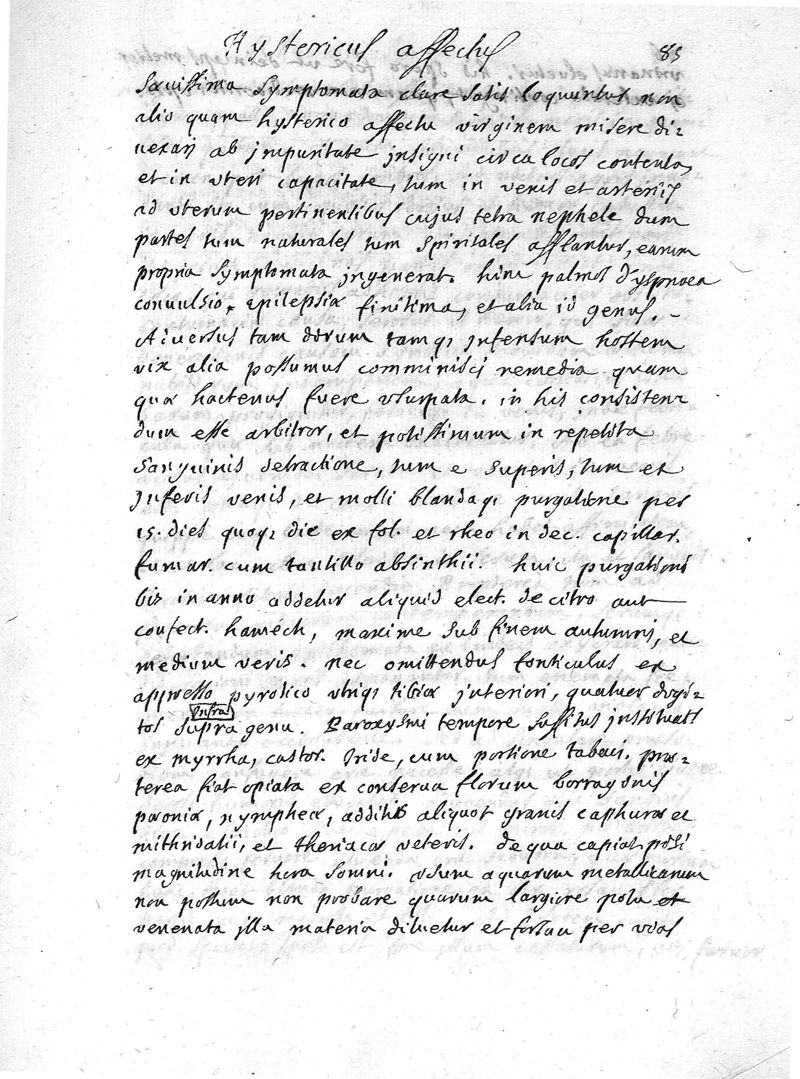 Hystericus affectus 85
Sævissima symptomata clare satis loquuntur non
alio quam hysterico affectu virginem misere di=
vexari ab impuritate insigni circa locos contenta,
et in uteri capacitate, tum in venis et arteriis
ad uterum pertinentibus cujus tetra nephele dum
partes tum naturales tum spiritales afflantur, earum
propria symptomata ingenerat. hinc palmos dyspnoea
convulsio, epilepsiæ finitima, et alia id genus. -
Adversus tam dirum tamq; infensum hostem
vix alia possumus comminisci remedia quam
quæ hactenus fuere usurpata. in his consisten=
dum esse arbitror, et potissimum in repetita
sanguinis detractione, tum e superis, tum et
inferis venis, et molli blandaq; purgatione per
15. dies quoq; die ex fol. et rheo in dec. capillar.
fumar. cum tantillo absinthii. huic purgationi
bis in anno addetur aliquid elect. de citro aut
confect. hamech, maxime sub finem autumni, et
medium veris. nec omittendus fonticulus ex
appulso pyrotico utriq; tibiæ interiori, quatuor digi=
infra
tos supra genu. Paroxysmi tempore suffitus instituatur
ex myrrha, castor. Iride, cum portione tabaci. præ=
terea fiat opiata ex conserva florum borraginis
pæoniæ, nympheæ, additis aliquot granis caphuræ et
mithridatii, et theriacæ veteris. de qua capiat pisi
magnitudine hora somni. usum aquarum metallicarum
non possum non probare quarum largiore potu et
venenata illa materia diluetur et forsan per vias